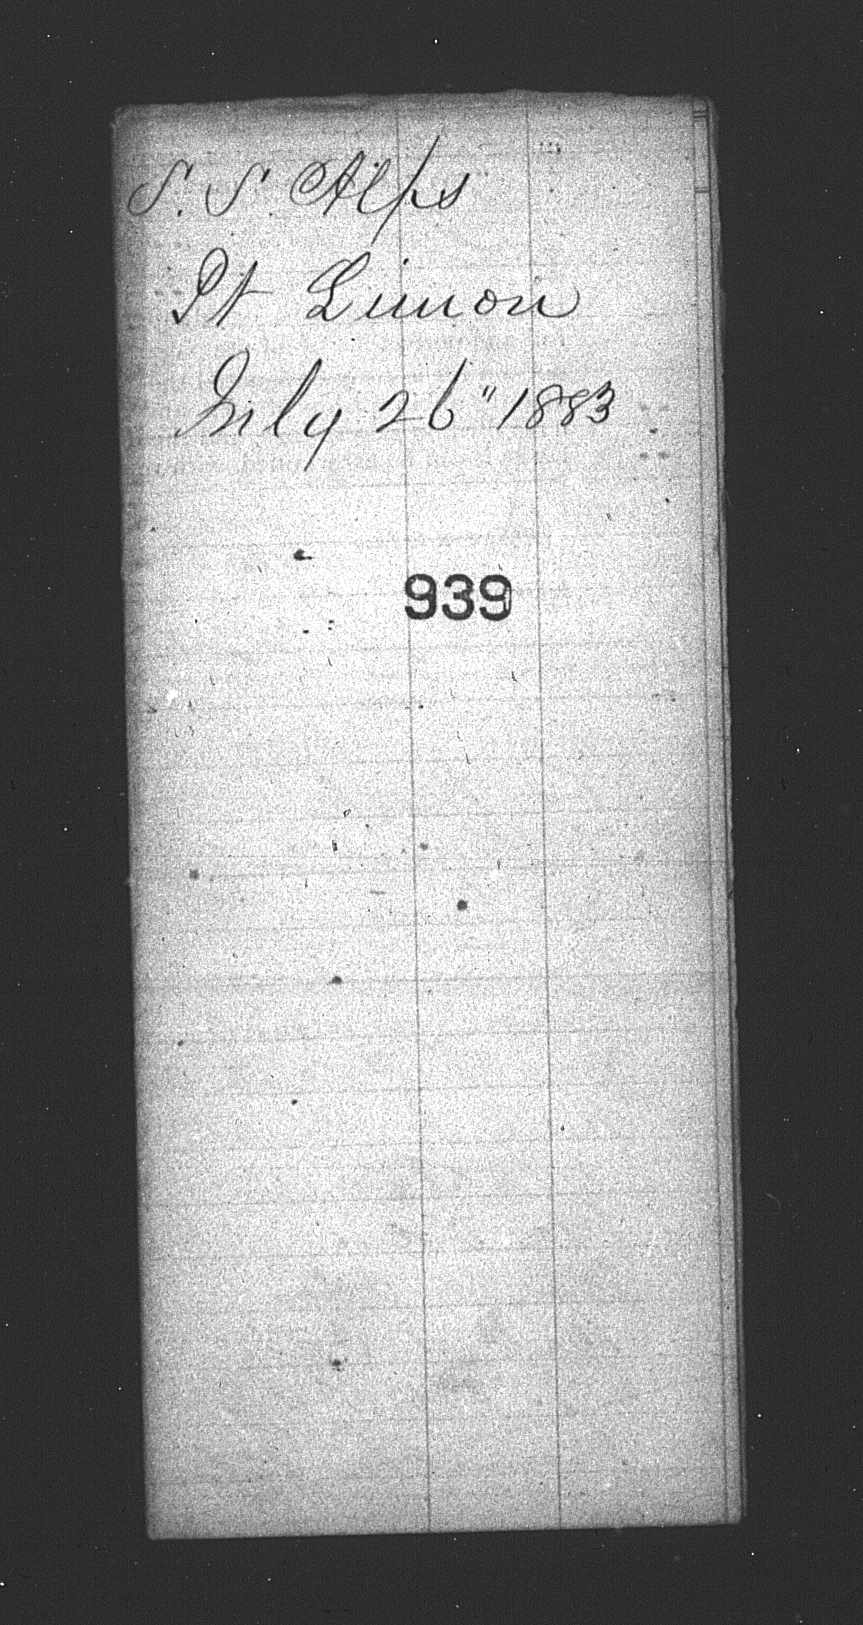 S. S. Alps
Pt Limon
July 26" 1883
939